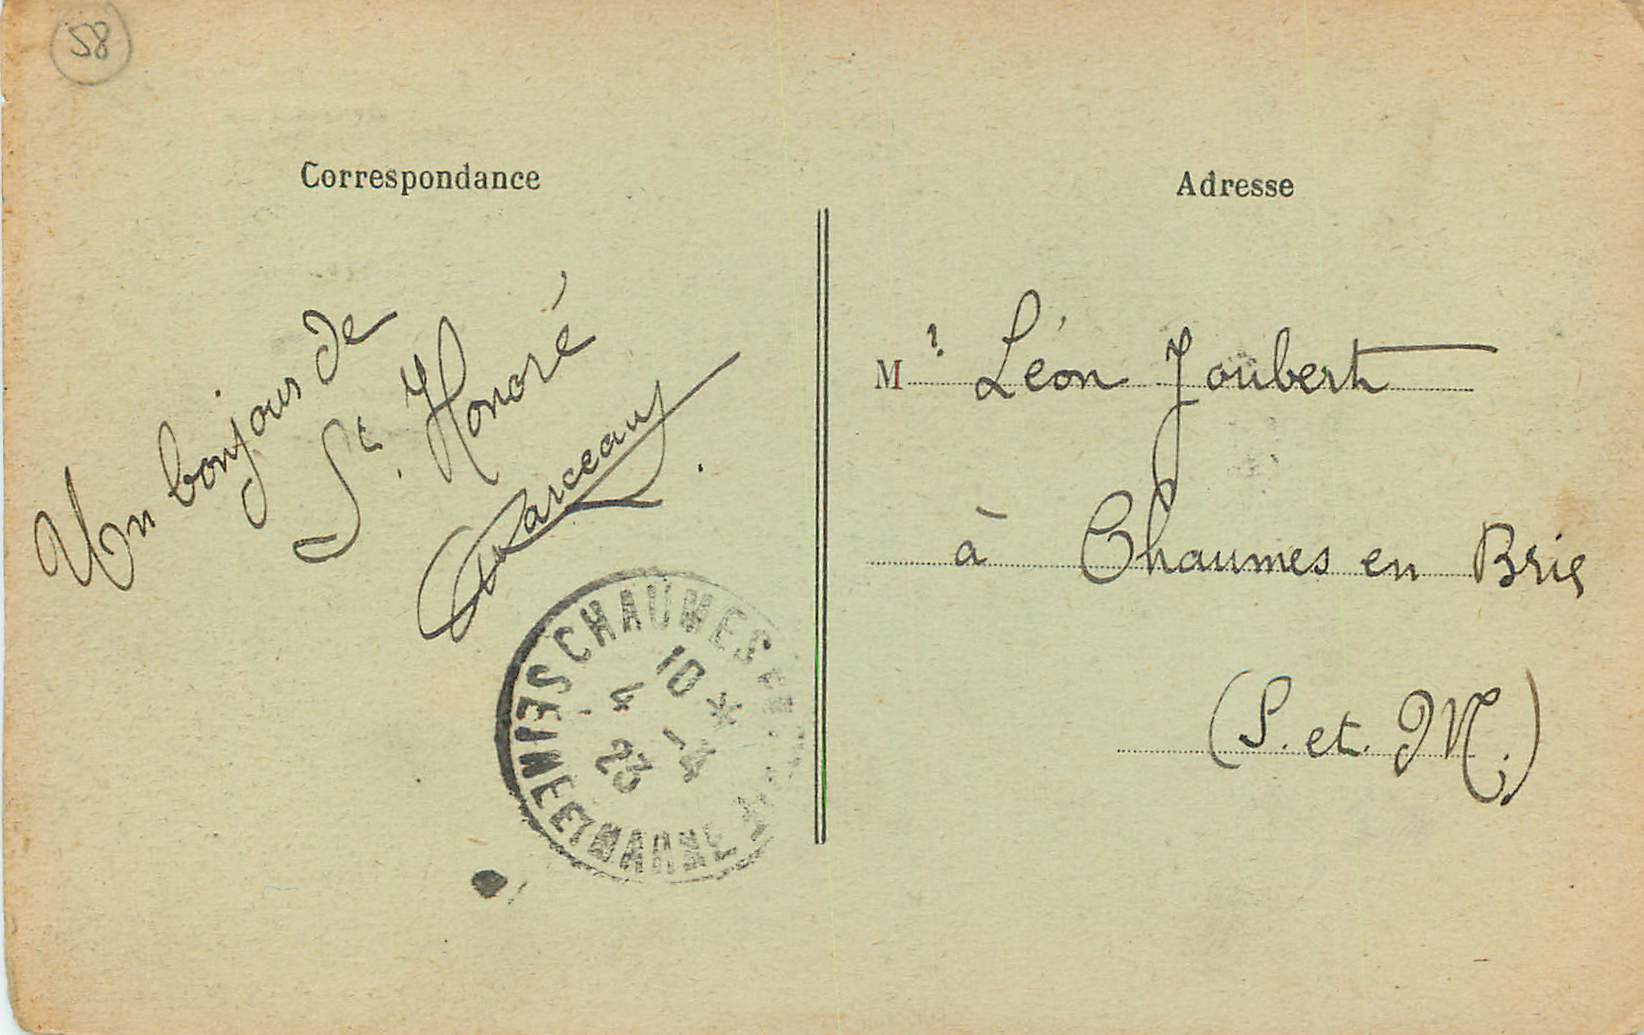 58
Correspondance
Adresse
Un bonjour de
St. Honoré
Mr Léon Joubert
à Chaumes en Brie
(S. et M.)
CHAUMES
SEINE ET MARNE
10 *
4 -4
23